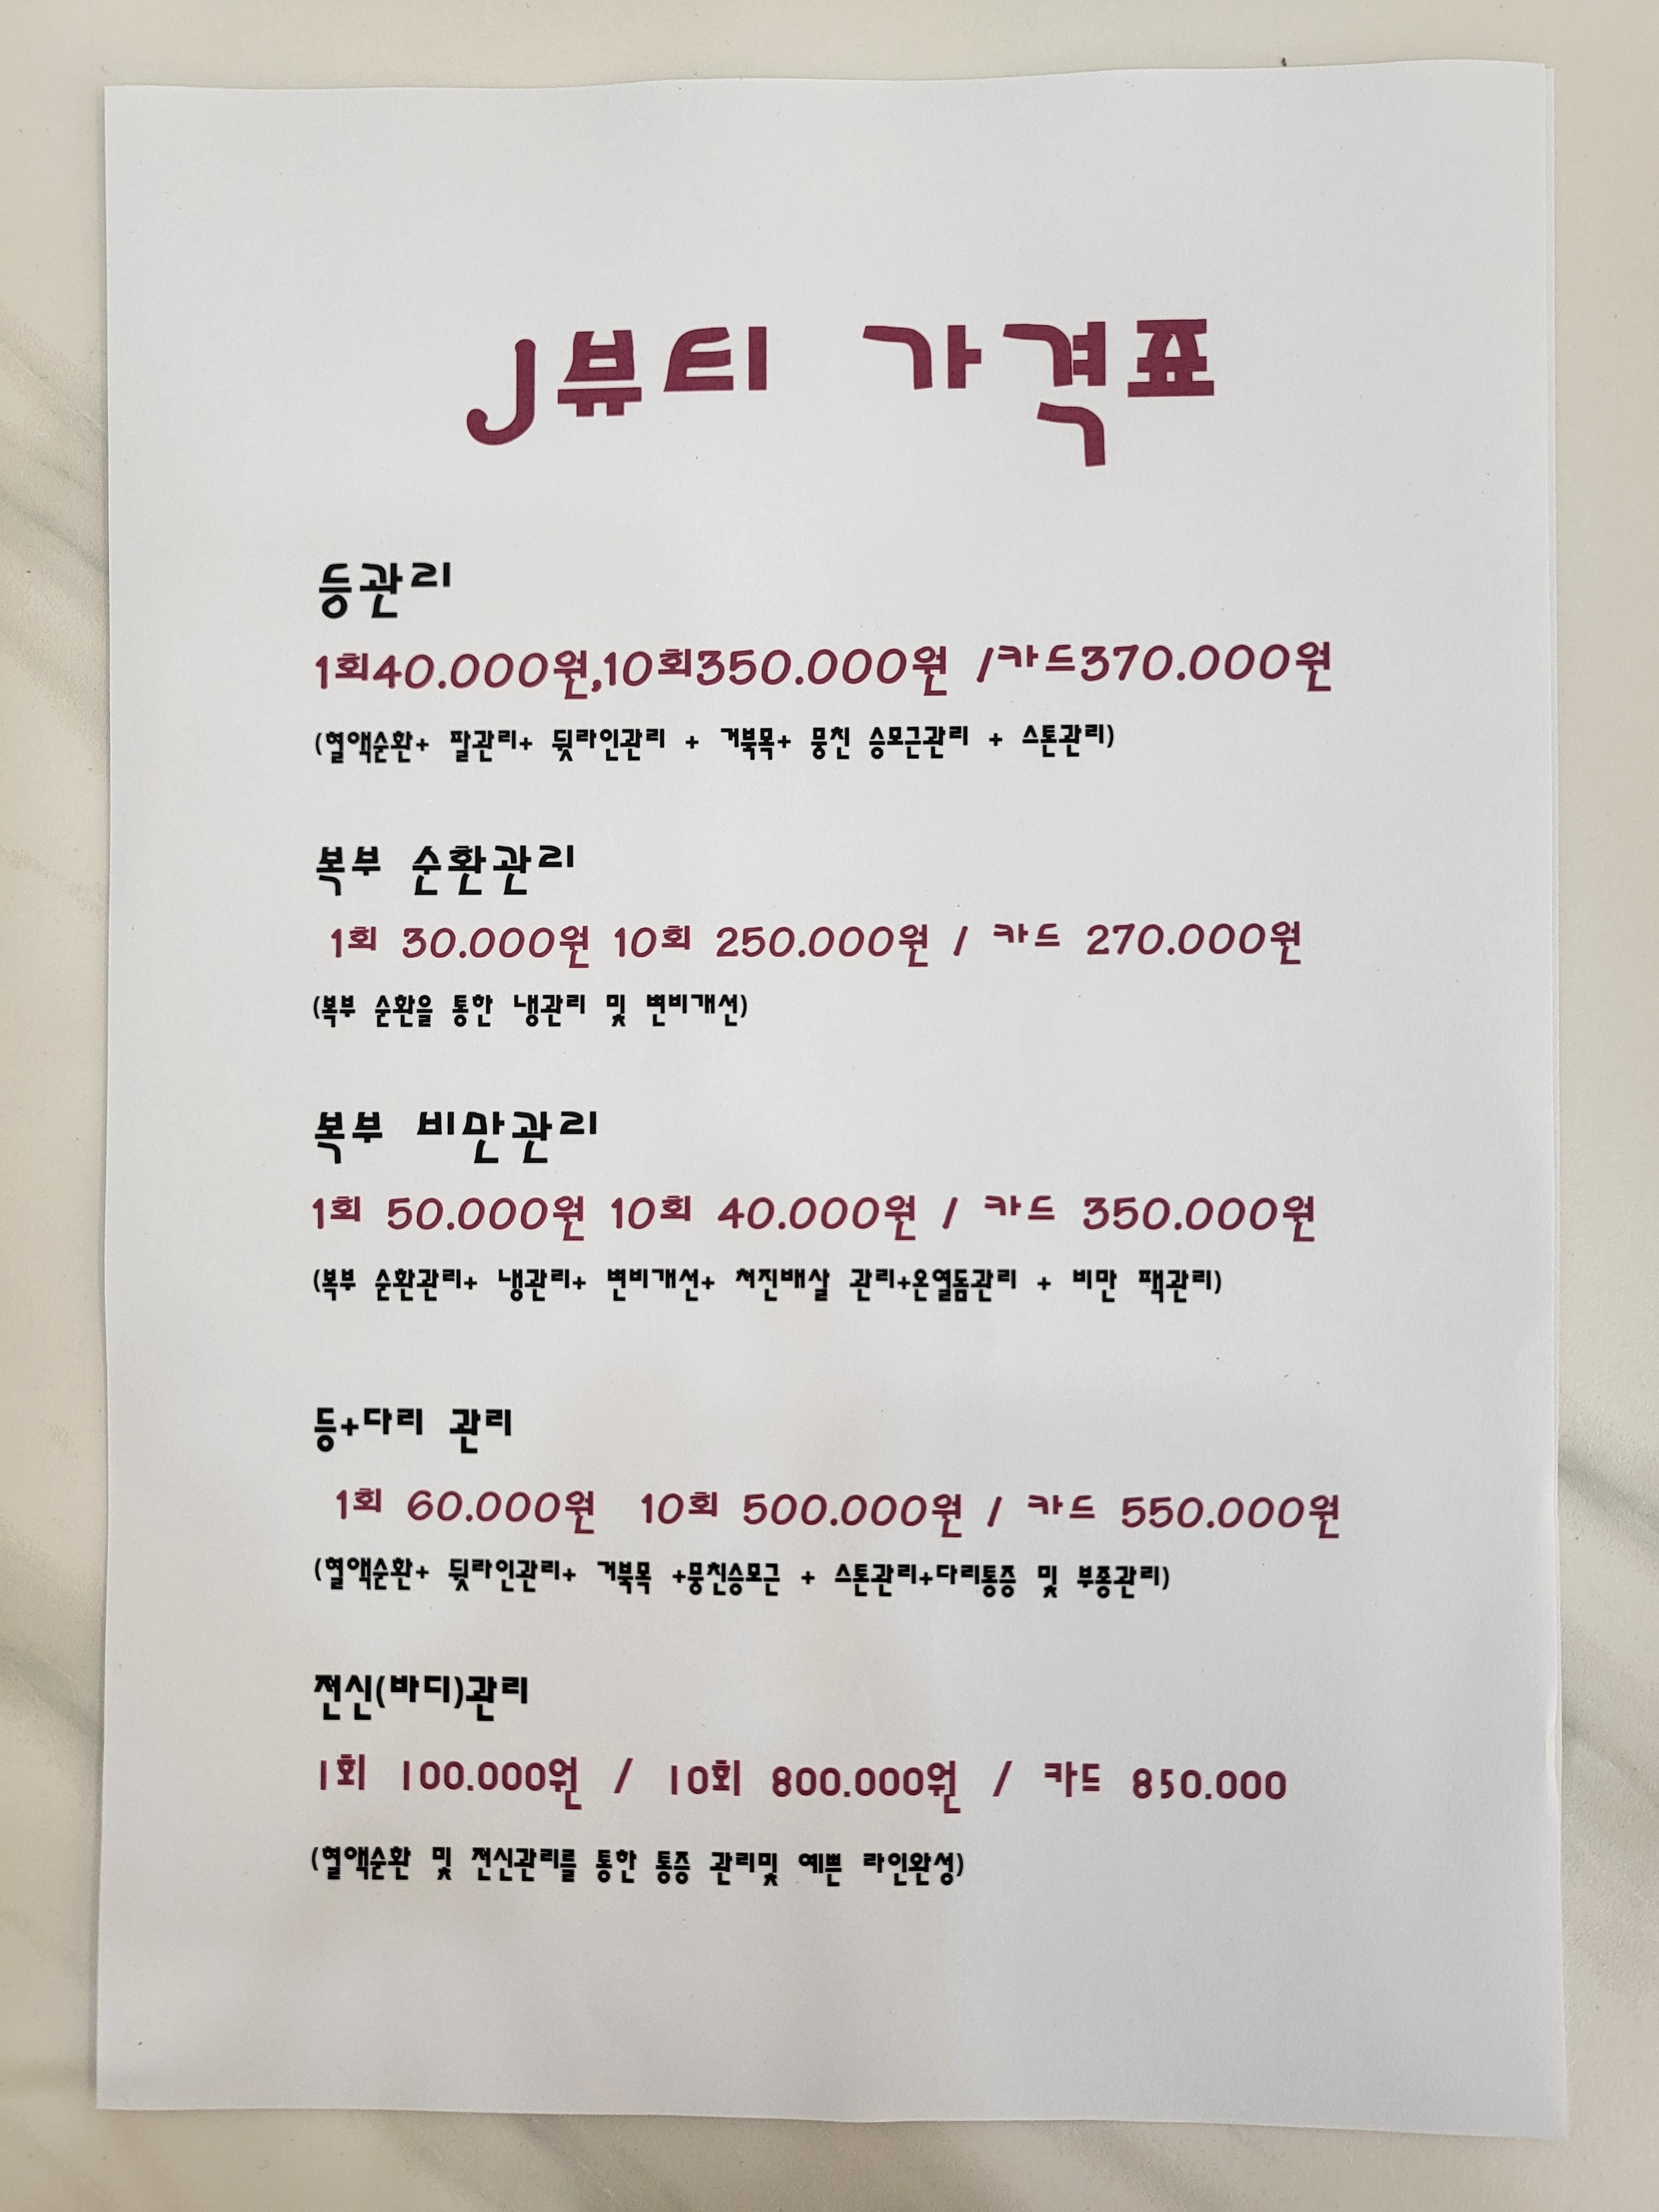 J뷰티 가격표
등관리
1회40.000원,10회350.000원 /카드370.000원
(혈액순환+ 팔관리+ 뒷라인관리 + 거북목+ 뭉친 승모근관리 + 스톤관리)
복부 순환관리
1회 30.000원 10회 250.000원 / 카드 270.000원
(복부 순환을 통한 냉관리 및 변비개선)
복부 비만관리
1회 50.000원 10회 40.000원 / 카드 350.000원
(복부 순환관리+ 냉관리+ 변비개선+ 처진배살 관리+온열돔관리 + 비만 팩관리)
등+다리 관리
1회 60.000원 10회 500.000원 / 카드 550.000원
(혈액순환+ 뒷라인관리+ 거북목 +뭉친승모근 + 스톤관리+다리통증 및 부종관리)
전신(바디)관리
1회 100.000원 / 10회 800.000원 / 카드 850.000
(혈액순환 및 전신관리를 통한 통증 관리및 예쁜 라인완성)